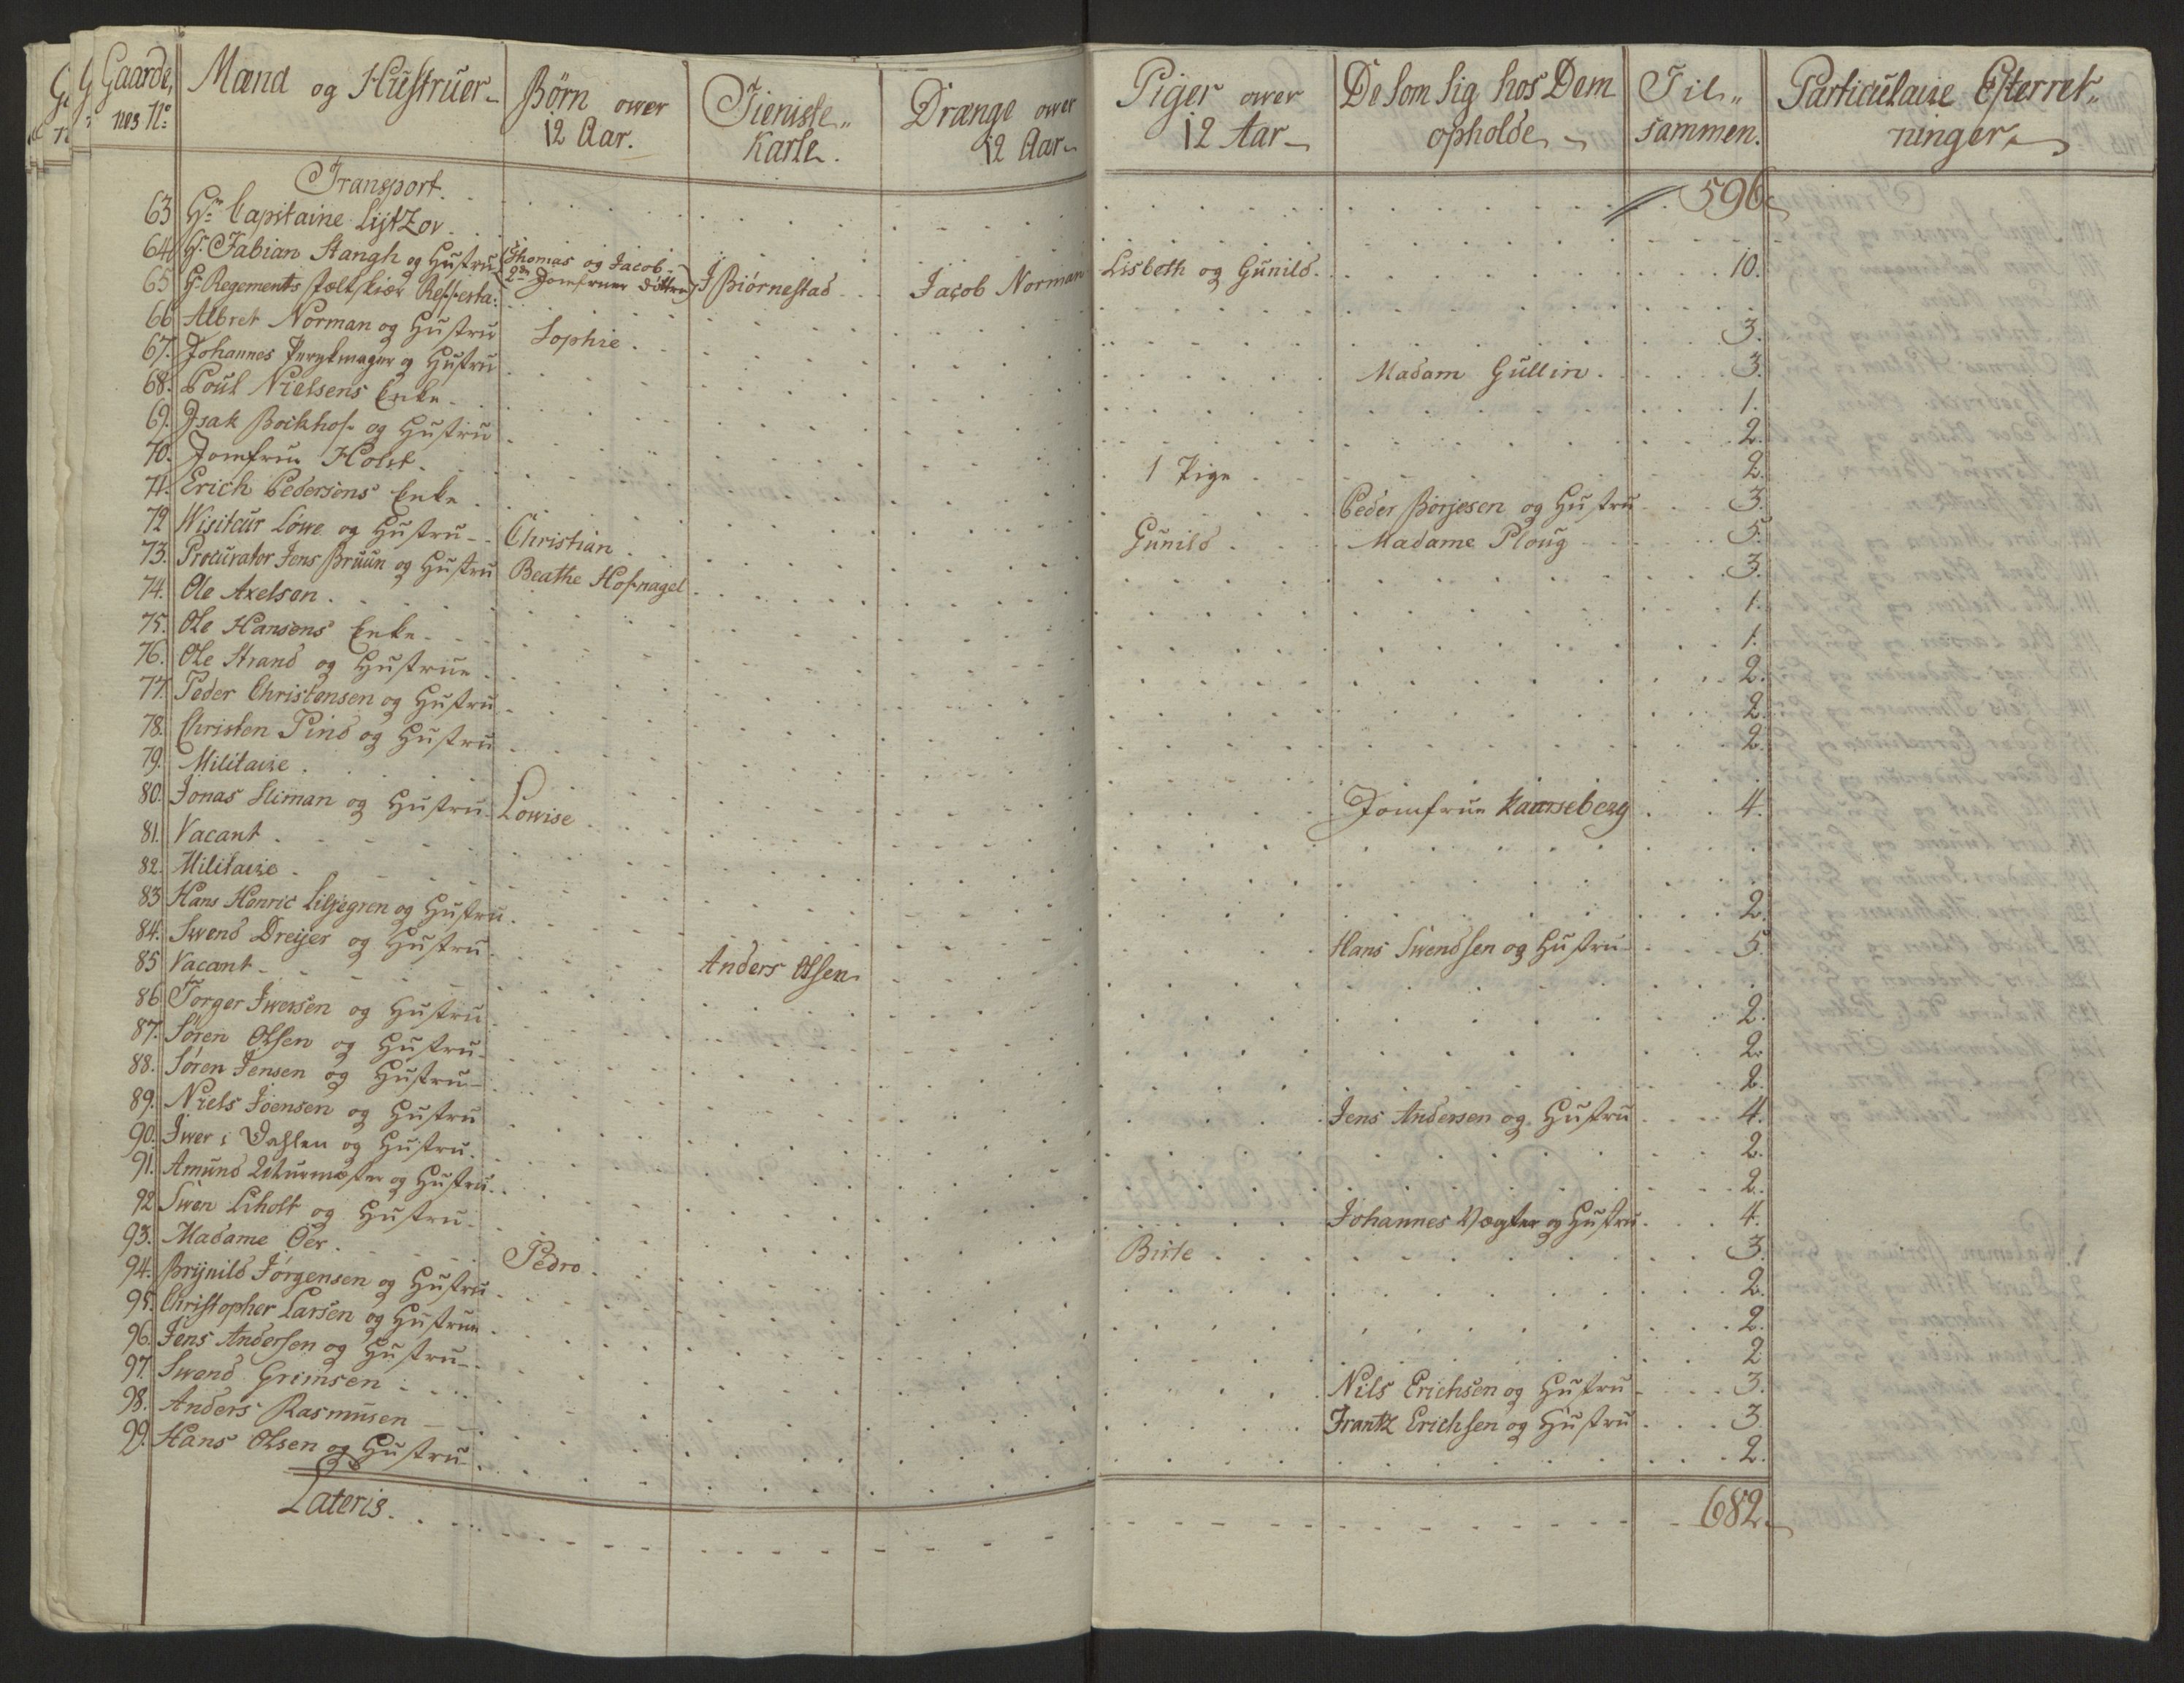 Gaarde, nes No. Mænd og Hustruer Børn over 12 Aar. Tieniste Karle. Drænge over 12 Aar Piger over 12 Aar De som sig hos Dem opholde Tilsammen. Particulaire Efterretninger
Transport. 596
63 Hr. Capitaine Lÿtzov
64 Hr. Fabian Stangh og Hustru Thomas og Jacob 2de Jomfruer ditto J Biørnestad Jacob Norman Lisbeth og Gunild 10.
65 Hr. Regements
66 Albret Norman og Hustru Sophie 3.
67. Johannes og Hustru Madam Gullin 3.
68. Poul Nielsens Enke 1.
69. Isak Bockhof og Hustru 2.
70. Jomfru Holst 1 Pige 2.
71. Erich Pedersens Enke Peder Börjesen og Hustru 3.
72 Visiteur Löwe og Hustru Christian Gunild Madame Ploug 5.
73. Procurator Jens Bruun og Hustru Beathe Hofnagel 3.
74. Ole Axelsen 1.
75. Ole Hansens Enke 1.
76. Ole Strand og Hustrue 2.
77. Peder Christensen og Hustru 2.
78. Christen Pind og Hustru 2.
79. Militaire
80. Jonas Sliman og Hustru Lowise Jomfrue Kaarseberg 4.
81. Vacant
82. Militaire
83 Hans Henric Liljegren og Hustru 2.
84. Swend Dreijer og Hustru Anders Olsen Hans Swendsen og Hustru 5.
85 Vacant
86 Torger Iwersen og Hustru 2.
87. Søren Olsen og Hustru 2.
88. Søren Jensen og Hustru 2.
89. Niels Joensen og Hustru Jens Andersen og Hustru 4.
90. Iwer i Dahlen og Hustru 2.
91. Amund og Hustru 2.
92 Swen Liholt og Hustru Johannes Vægter og Hustru 4.
93. Madame Oer Pedro Birte 3.
94. Brÿnild Jørgensen og Hustru 2.
95. Christopher Larsen og Hustrue 2.
96. Jens Andersen og Hustru 2
97. Swend Grimsen Nils Erichsen og Hustru 3.
98. Anders Rasmusen Frantz Erichsen og Hustru 3.
99. Hans Olsen og Hustru 2.
Lateris 682.